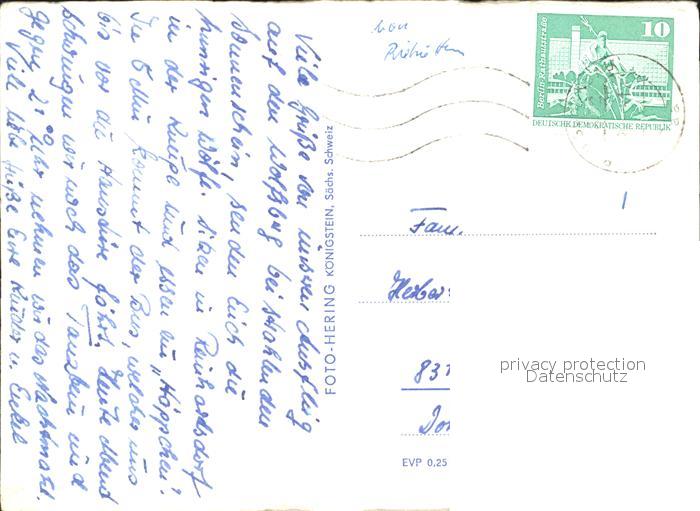 Viele Grüße von unserem Ausflug
auf den Wolfsberg bei strahlenden
Sonnenschein, senden Euch die
hungrigen Wölfe. Sitzen in Reinhardtsdorf
in der Kneipe und essen ein "Häppchen".
In 5 Min kommt der Bus, welcher uns
bis vor die Haustüre fährt. Heute Abend
schwingen wir noch das Tanzbein und
gegen 21 00 Uhr nehmen wir das Nachtmahl.
Viele liebe Grüße Eure Kinder u. Enkel
von
FOTO-HERING KÖNIGSTEIN, Sächs. Schweiz
10
Berlin-Rathausstraße
DEUTSCHE DEMOKRATISCHE REPUBLIK
Fam.
Herber
831
Do
EVP 0,25
privacy protection
Datenschutz